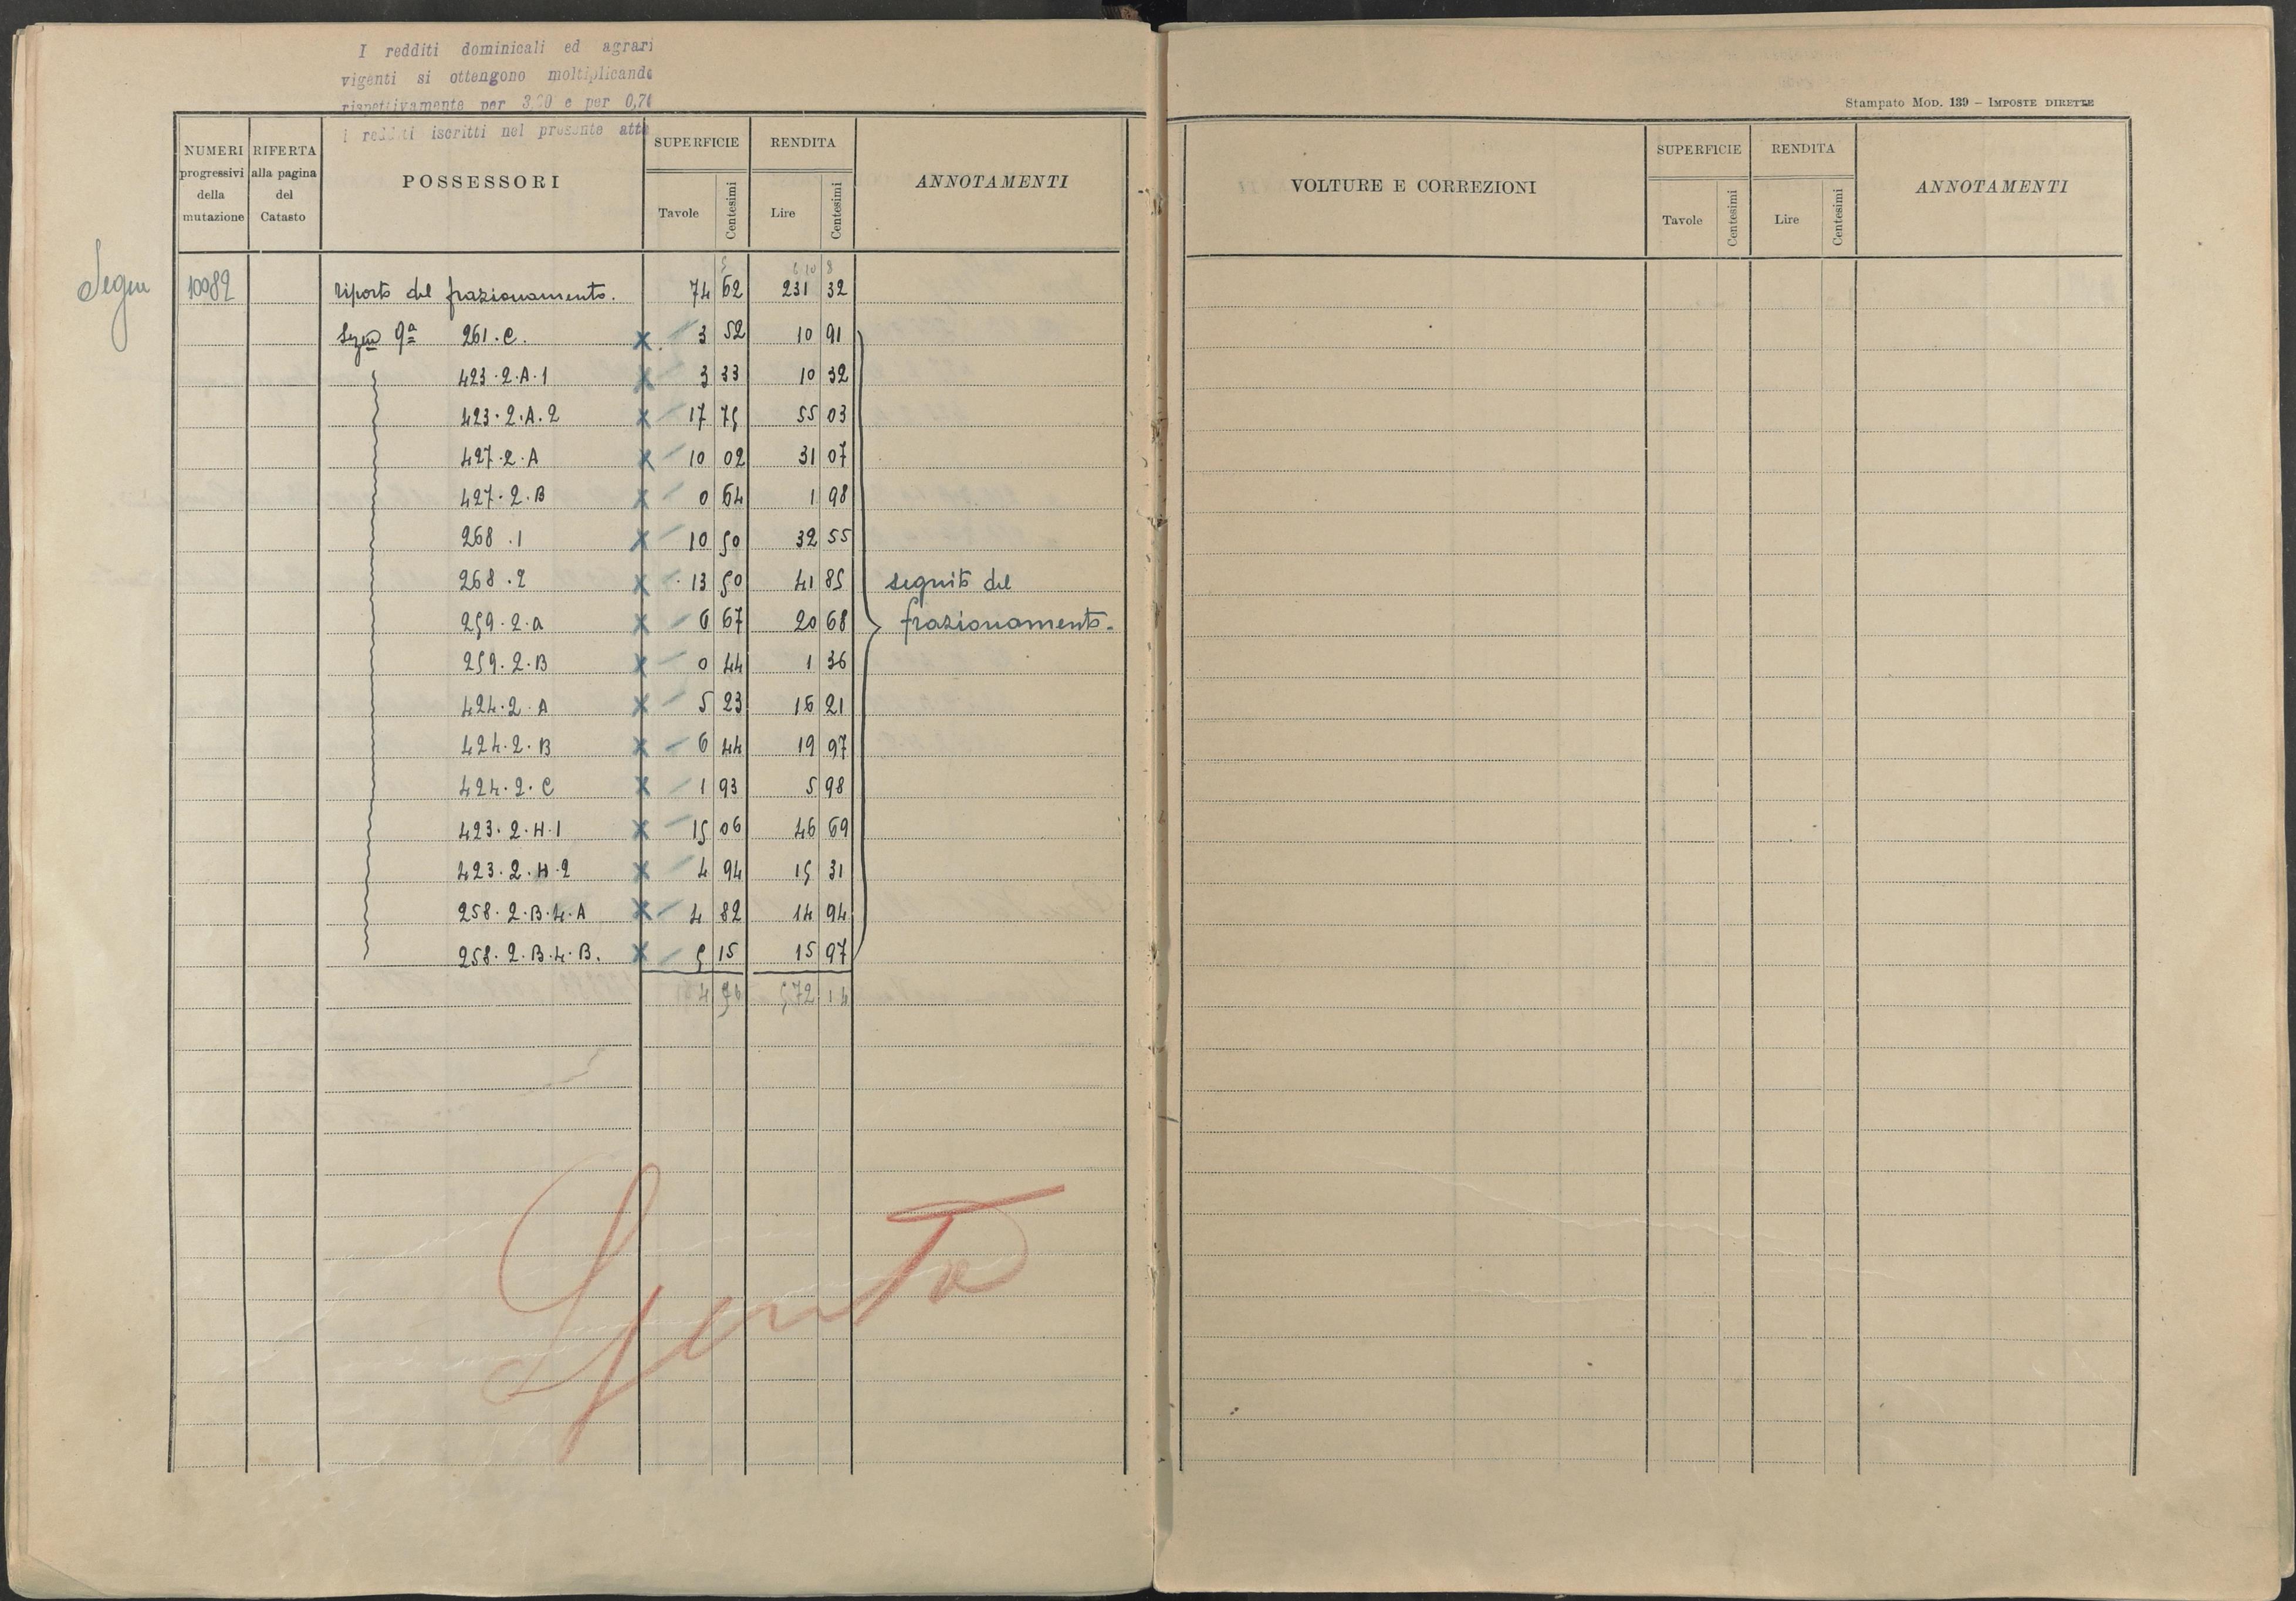 I redditi dominicali ed agrari
vigenti si ottengono moltiplicando
rispettivamente per 3,20 e per 0,70
i redditi iscritti nel presente atto
NUMERI progressivi della mutazione
RIFERTA alla pagina del Catasto
POSSESSORI
SUPERFICIE
Tavole
Centesimi
RENDITA
Lire
Centesimi
ANNOTAMENTI
Segue 10082 riporto del frazionamento. 74 62 231 32
Sezne 9a 261.C. x 3 52 10 91
423.2.A.1 x 3 33 10 32
423.2.A.2 x 17 75 55 03
427.2.A x 10 02 31 07
427.2.B x 0 64 1 98
268.1 x 10 50 32 55
268.2 x 13 50 41 85 seguito del
259.2.a x 6 67 20 68 frazionamento.
259.2.B x 0 44 1 36
424.2.A x 5 23 16 21
424.2.B x 6 44 19 97
424.2.C x 1 93 5 98
423.2.H.1 x 15 06 46 69
423.2.H.2 x 4 94 15 31
258.2.B.4.A x 4 82 14 94
258.2.B.4.B. x 5 15 15 97
572 14
Spento
Stampato Mod. 139 – Imposte dirette
VOLTURE E CORREZIONI
SUPERFICIE
Tavole
Centesimi
RENDITA
Lire
Centesimi
ANNOTAMENTI